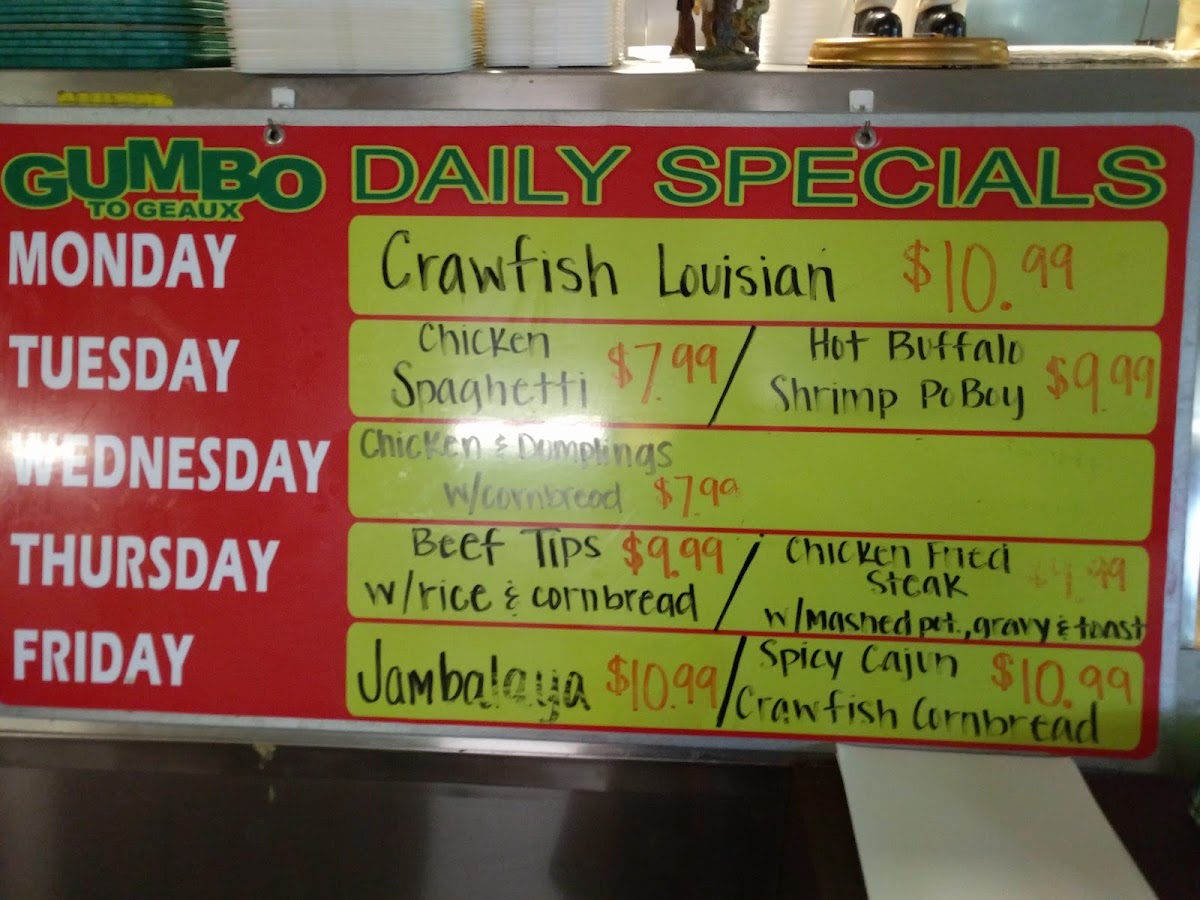 GUMBO
TO GEAUX
DAILY SPECIALS
MONDAY
Crawfish Louisian $10.99
TUESDAY
Chicken
Spaghetti $7.99 /
Hot Buffalo
Shrimp PoBoy $9.99
WEDNESDAY
Chicken & Dumplings
w/cornbread $7.99
THURSDAY
Beef Tips $9.99
w/rice & cornbread /
Chicken Fried
Steak $9.99
w/mashed pot., gravy & toast
FRIDAY
Jambalaya $10.99 /
Spicy Cajun $10.99
Crawfish Cornbread